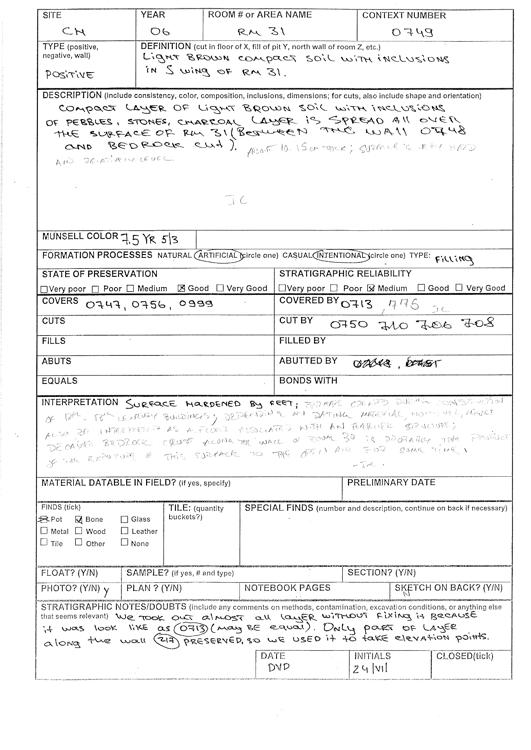 SITE YEAR ROOM # or AREA NAME CONTEXT NUMBER
CM 06 RM 31 0749
TYPE (positive, negative, wall) DEFINITION (cut in floor of X, fill of pit Y, north wall of room Z, etc.)
POSITIVE LIGHT BROWN COMPACT SOIL WITH INCLUSIONS
IN S WING OF RM 31.
DESCRIPTION (include consistency, color, composition, inclusions, dimensions; for cuts, also include shape and orientation)
COMPACT LAYER OF LIGHT BROWN SOIL WITH INCLUSIONS
OF PEBBLES, STONES, CHARCOAL LAYER IS SPREAD ALL OVER
THE SURFACE OF RM 31 (BETWEEN THE WALL 0748
AND BEDROCK CUT). ABOUT 10-15cm THICK; SURFACE IS VERY HARD
AND LEVEL
JC
MUNSELL COLOR 7.5 YR 5/3
FORMATION PROCESSES NATURAL ARTIFICIAL (circle one) CASUAL INTENTIONAL (circle one) TYPE: FILLING
STATE OF PRESERVATION STRATIGRAPHIC RELIABILITY
Very poor Poor Medium Good Very Good Very poor Poor Medium Good Very Good
COVERS 0747, 0756, 0999 COVERED BY 0713, 775 JC
CUTS CUT BY 0750 710 706 708
FILLS FILLED BY
ABUTS ABUTTED BY
EQUALS BONDS WITH
INTERPRETATION SURFACE HARDENED BY FEET;
OF BUILDINGS; DEPENDING ON DATING MATERIAL,
ALSO BE INTERPRETED AS A FLOOR ASSOCIATED WITH AN EARLIER STRUCTURE;
BEDROCK ALONG THE WALL OF ROOM 30 IS
OF THE OF THIS SURFACE TO THE OPEN AIR FOR SOME TIME.
MATERIAL DATABLE IN FIELD? (if yes, specify) PRELIMINARY DATE
FINDS (tick) TILE: (quantity buckets?) SPECIAL FINDS (number and description, continue on back if necessary)
Pot Bone Glass
Metal Wood Leather
Tile Other None
FLOAT? (Y/N) SAMPLE? (if yes, # and type) SECTION? (Y/N)
PHOTO? (Y/N) y PLAN ? (Y/N) NOTEBOOK PAGES SKETCH ON BACK? (Y/N)
STRATIGRAPHIC NOTES/DOUBTS (include any comments on methods, contamination, excavation conditions, or anything else
that seems relevant) WE TOOK OUT ALMOST ALL LAYER WITHOUT FIXING IT BECAUSE
it was LOOK LIKE AS 0713 (MAY BE EQUAL). ONLY PART OF LAYER
along the wall 217 PRESERVED, SO WE USED IT TO TAKE ELEVATION POINTS.
DATE INITIALS CLOSED(tick)
DVD 24/VII